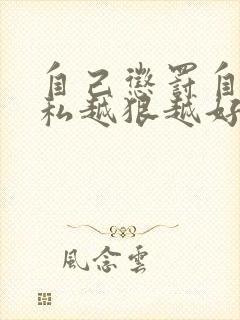 自己懲罰自
私越狠越好
風念雲